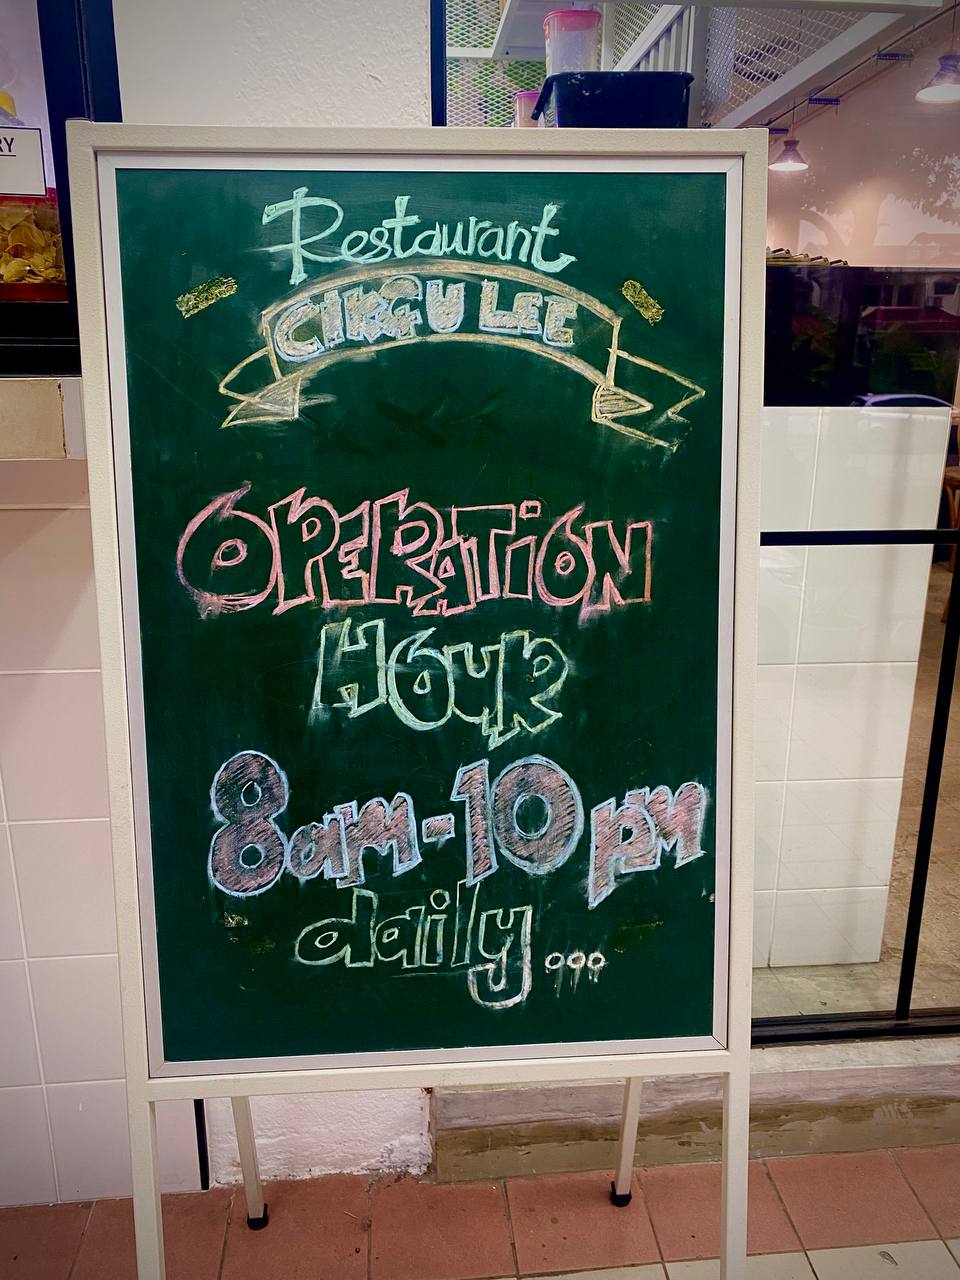 RY
Restaurant
CIK&U LEE
OPERATiON
HOUR
8am-10pm
daily...